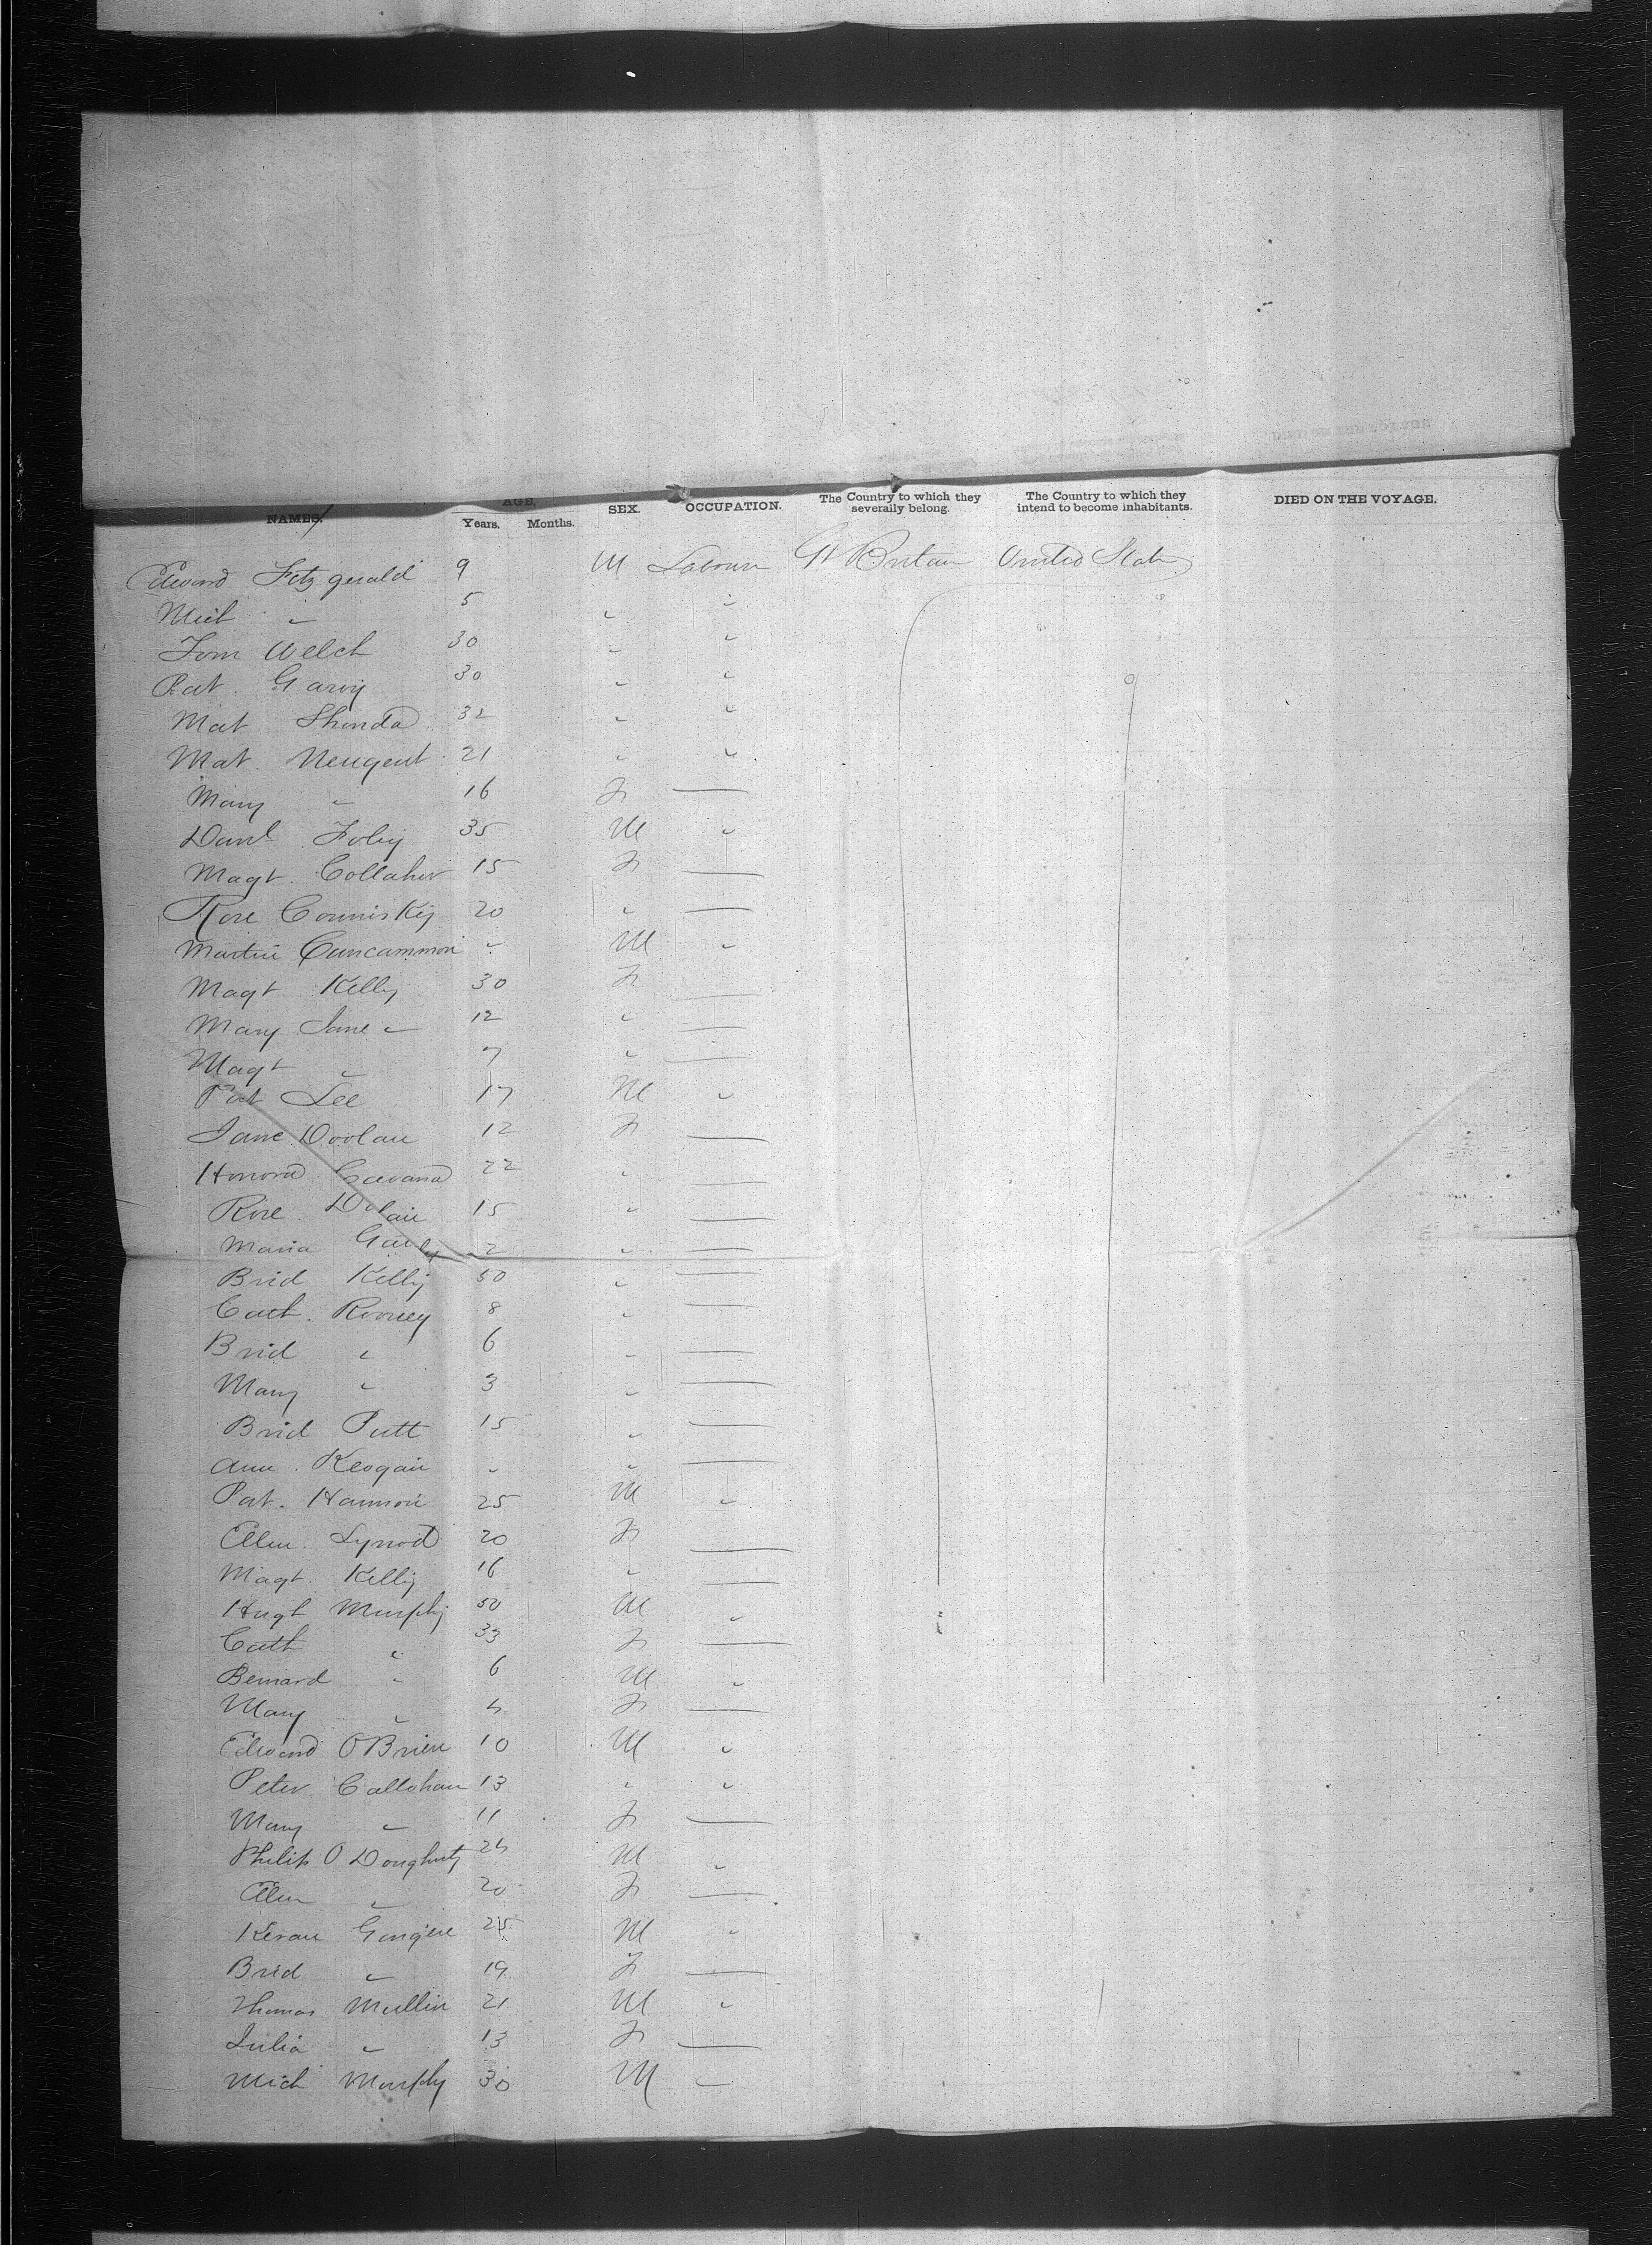 NAMES. AGE. Years. Months. SEX. OCCUPATION. The Country to which they severally belong. The Country to which they intend to become inhabitants. DIED ON THE VOYAGE.
Edward Fitzgerald 9 M Labourer Gt Britain United States
Mich " 5 " "
Tom Welch 30 " "
Pat. Garvy 30 " "
Mat 32 " "
Mat. Neugent 21 " "
Mary " 16 F —
Danl Foley 35 M "
Magt. Collaher 15 F —
Rose Commisky 20 " —
Martin Cuncammon " M "
Magt Kelly 30 F —
Mary Jane " 12 " —
Magt " 7 " —
Pat Lee 17 M "
Jane Doolan 12 F —
Honora Cavana 22 " —
Rose Dolan 15 " —
Maria 2 " —
Brid Kelly 50 " —
Cath. Rooney 8 " —
Brid " 6 " —
Mary " 3 " —
Brid Putt 15 " —
Ann. Keogan " " —
Pat. Hannon 25 M "
Ellen. Lynod 20 F —
Magt. Kelly 16 " —
Hugh Murphy 50 M "
Cath " 33 F —
Bernard " 6 M "
Mary " 4 F —
Edward O'Brien 10 M "
Peter Callahan 13 " "
Mary " 11 F —
Philip O Dougherty 24 M "
Ellen " 20 F —
Keran 25 M "
Brid " 19 F —
Thomas Mullin 21 M "
Julia " 13 F —
Mich Murphy 30 M "